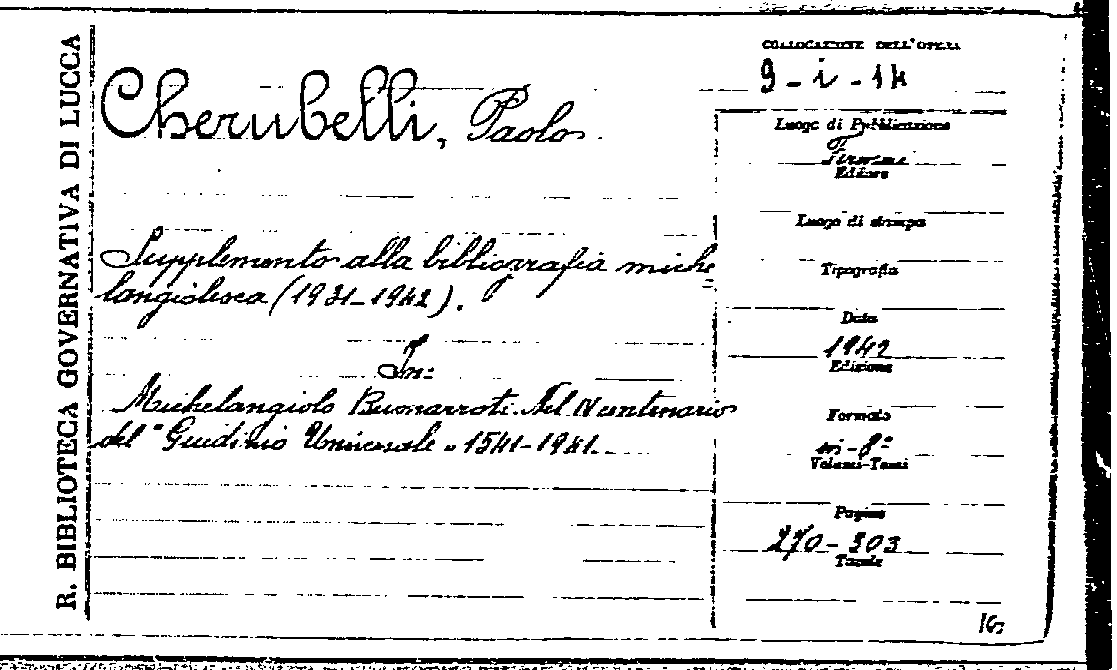 R. BIBLIOTECA GOVERNATIVA DI LUCCA
Cherubelli, Paolo
Supplemento alla bibliografia miche
langiolesca (1931-1942).
In:
Michelangiolo Buonarroti. Nel IV centenario
del "Giudizio Universale" 1541-1941.
COLLOCAZIONE DELL'OPERA
9 - i - 14
Luogo di Pubblicazione
Firenze
Editore
Luogo di stampa
Tipografia
Data
1942
Edizione
Formato
in-8°
Volumi-Tomi
Pagine
270-303
Tavole